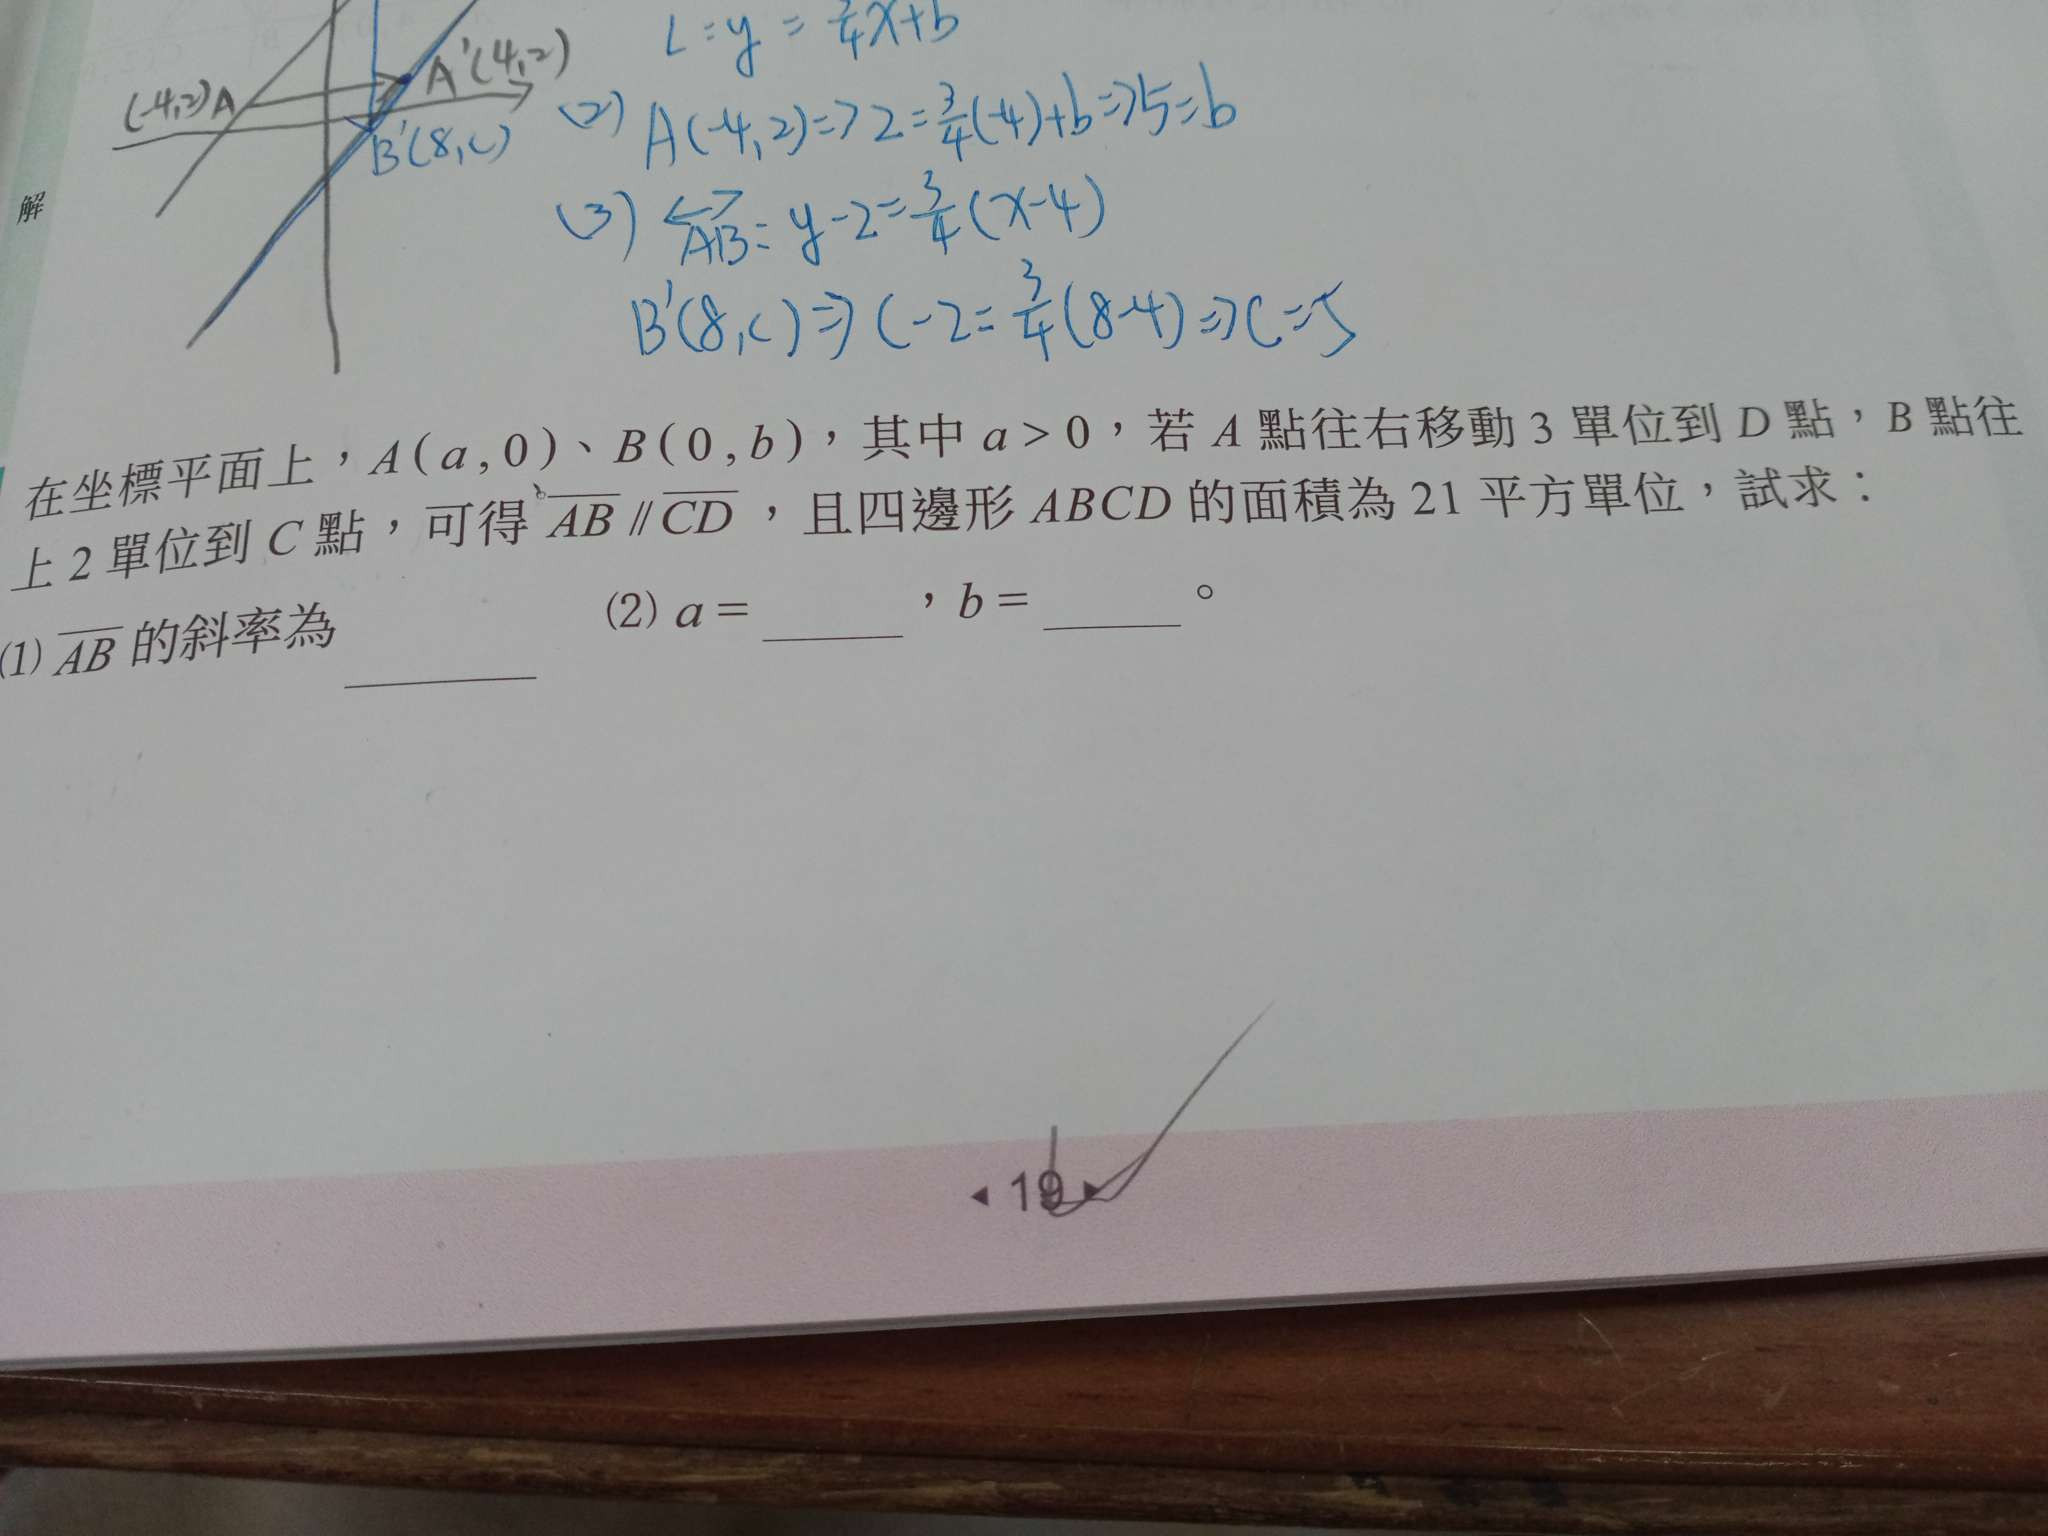 L:y = 3/4x+b
(-4,2)A
A'(4,2)
B'(8,c)
(2) A(-4,2)=>2=3/4(-4)+b=>5=b
(3) AB: y-2=3/4(x-4)
B'(8,c)=>c-2=3/4(8-4)=>c=5
解
在坐標平面上，A(a,0)、B(0,b)，其中 a>0，若 A 點往右移動 3 單位到 D 點，B 點往
上 2 單位到 C 點，可得 AB // CD，且四邊形 ABCD 的面積為 21 平方單位，試求：
(1) AB 的斜率為 ______ (2) a= ______，b= ______。
19